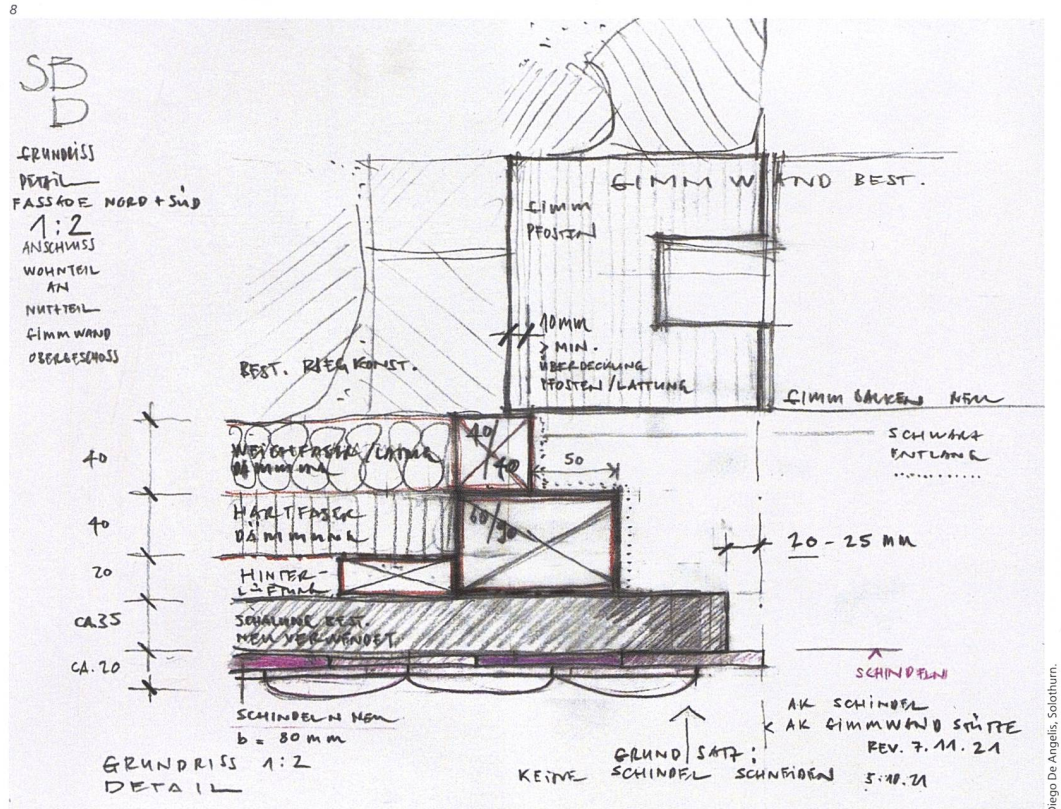 8
SB
D
GRUNDRISS
DETAIL
FASSADE NORD + SÜD
1:2
ANSCHLUSS
WOHNTEIL
AN
NUTZTEIL
GIMMWAND
OBERGESCHOSS
GIMM WAND BEST.
GIMM
PFOSTEN
10mm
> MIN.
ÜBERDECKUNG
PFOSTEN/LATTUNG
BEST. RIEGKONST.
GIMM BALKEN NEU
SCHWARZ
ENTLANG
40
WEICHFASER/LATTUNG
DÄMMUNG
40/40
50
40
HARTFASER
DÄMMUNG
60/90
20 - 25 mm
20
HINTER-
LÜFTUNG
CA.35
SCHALUNG BEST.
NEU VERWENDET
CA.20
SCHINDELN
SCHINDELN NEU
b = 80 mm
AK SCHINDEL
< AK GIMMWAND STÜTZE
REV. 7.11.21
5.10.21
GRUNDSATZ:
KEINE SCHINDEL SCHNEIDEN
GRUNDRISS 1:2
DETAIL
Diego De Angelis, Solothurn.